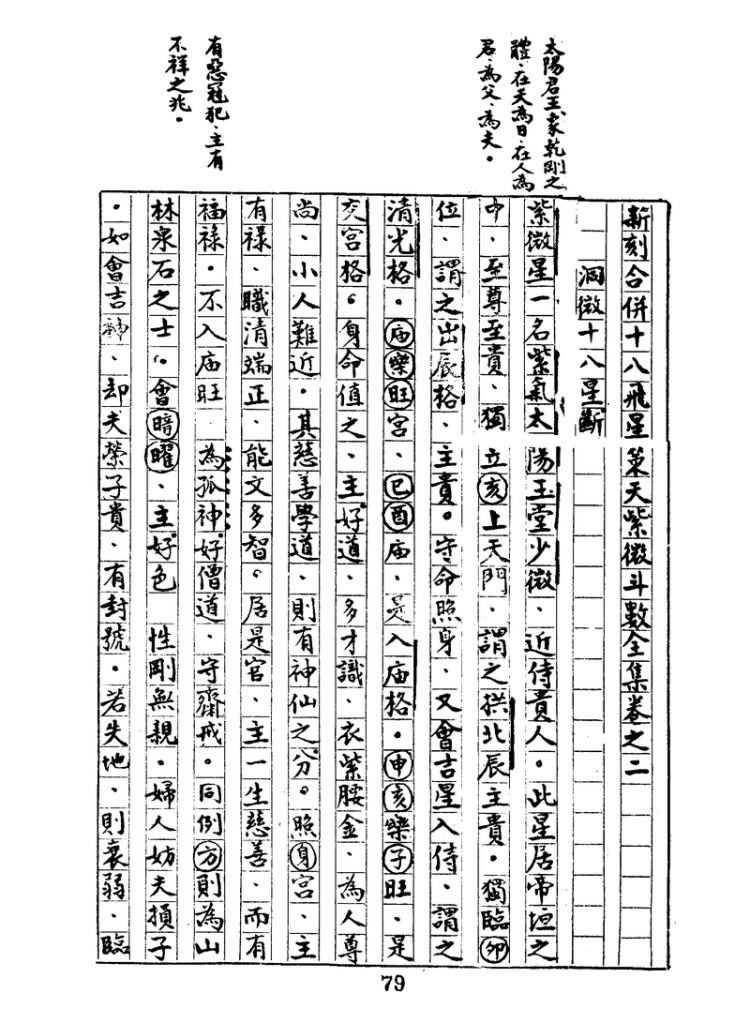 太陽君王、象乾剛之
體、在天為日、在人為
君、為父、為夫。
有惡冠犯、主有
不祥之兆。
新刻合併十八飛星策天紫微斗數全集卷之二
洞微十八星斷
紫微星一名紫氣太陽玉堂少微、近侍貴人。此星居帝垣之
中、至尊至貴、獨立亥上天門、謂之拱北辰主貴。獨臨卯
位、謂之出辰格、主貴。守命照身、又會吉星入侍、謂之
清光格。廟樂旺宮、巳酉庙、是入庙格。申亥樂子旺、是
交宮格。身命值之、主好道、多才識、衣紫腰金、為人尊
尚、小人難近。其慈善學道、則有神仙之分。照身宮、主
有祿、職清端正、能文多智。居是宮、主一生慈善、而有
福祿。不入庙旺 為孤神好僧道、守齋戒。同例方則為山
林泉石之士。會暗曜、主好色 性剛無親。婦人妨夫損子
。如會吉神、却夫榮子貴、有封號。若失地、則衰弱、臨
79